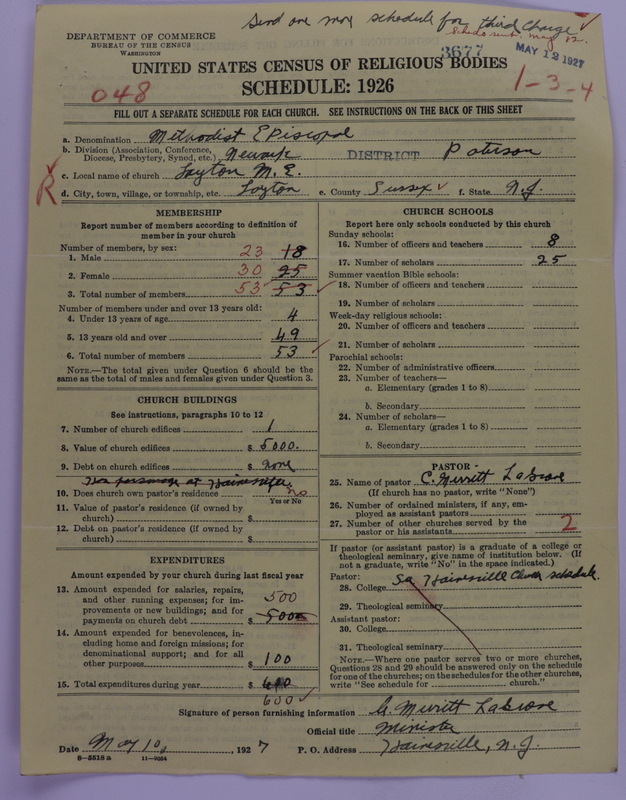 Send one more schedule for third charge
Scheds sent May 12.
DEPARTMENT OF COMMERCE
BUREAU OF THE CENSUS
WASHINGTON
3677
MAY 12 1927
UNITED STATES CENSUS OF RELIGIOUS BODIES
SCHEDULE: 1926
048
1-3-4
FILL OUT A SEPARATE SCHEDULE FOR EACH CHURCH. SEE INSTRUCTIONS ON THE BACK OF THIS SHEET
a. Denomination Methodist Episcopal
b. Division (Association, Conference, Diocese, Presbytery, Synod, etc.) Newark DISTRICT Paterson
c. Local name of church Layton M. E.
R
d. City, town, village, or township, etc. Layton e. County Sussex f. State N.J.
MEMBERSHIP
Report number of members according to definition of
member in your church
Number of members, by sex:
1. Male 23 18
2. Female 30 25
3. Total number of members 53 53
Number of members under and over 13 years old:
4. Under 13 years of age 4
5. 13 years old and over 49
6. Total number of members 53
NOTE.—The total given under Question 6 should be
same as the total of males and females given under Question 3.
CHURCH BUILDINGS
See instructions, paragraphs 10 to 12
7. Number of church edifices 1
8. Value of church edifices $ 5000.
9. Debt on church edifices $ none
Has parsonage at Hainesville
10. Does church own pastor's residence no
Yes or No
11. Value of pastor's residence (if owned by
church) $
12. Debt on pastor's residence (if owned by
church) $
EXPENDITURES
Amount expended by your church during last fiscal year
13. Amount expended for salaries, repairs,
and other running expenses; for im-
provements or new buildings; and for
payments on church debt $ 500 5000
14. Amount expended for benevolences, in-
cluding home and foreign missions; for
denominational support; and for all
other purposes $ 100
15. Total expenditures during year $
600
CHURCH SCHOOLS
Report here only schools conducted by this church
Sunday schools:
16. Number of officers and teachers 8
17. Number of scholars 25
Summer vacation Bible schools:
18. Number of officers and teachers
19. Number of scholars
Week-day religious schools:
20. Number of officers and teachers
21. Number of scholars
Parochial schools:
22. Number of administrative officers
23. Number of teachers—
a. Elementary (grades 1 to 8)
b. Secondary
24. Number of scholars—
a. Elementary (grades 1 to 8)
b. Secondary
PASTOR
25. Name of pastor C. Merritt LaGrove
(If church has no pastor, write "None")
26. Number of ordained ministers, if any, em-
ployed as assistant pastors
27. Number of other churches served by the
pastor or his assistants 2
If pastor (or assistant pastor) is a graduate of a college or
theological seminary, give name of institution below. (If
not a graduate, write "No" in the space indicated.)
Pastor:
28. College Hainesville Church schedule.
29. Theological seminary
Assistant pastor:
30. College
31. Theological seminary
NOTE.—Where one pastor serves two or more churches,
Questions 28 and 29 should be answered only on the schedule
for one of the churches; on the schedules for the other churches,
write "See schedule for church."
Signature of person furnishing information C. Merritt LaGrove
Official title Minister
Date May 10, 1927 P. O. Address Hainesville, N.J.
8-5518 a 11-9554